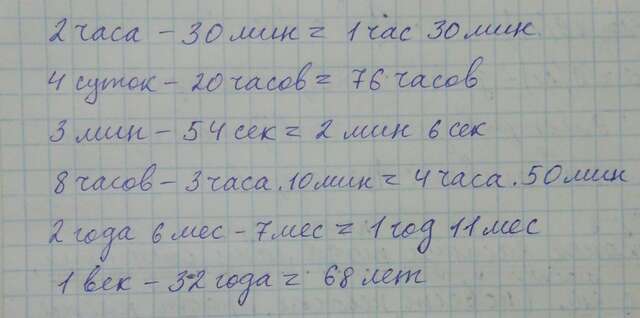 2 часа - 30 мин = 1 час 30 мин.
4 суток - 20 часов = 76 часов
3 мин - 54 сек = 2 мин 6 сек
8 часов - 3 часа. 10 мин = 4 часа. 50 мин
2 года 6 мес - 7 мес = 1 год 11 мес
1 век - 32 года = 68 лет